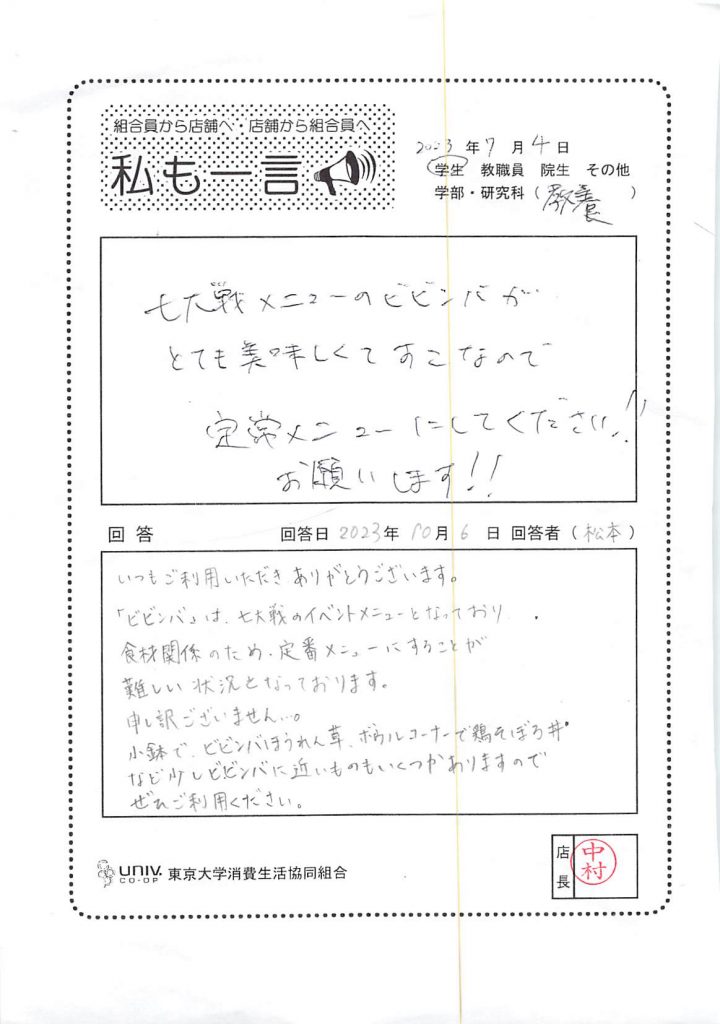 組合員から店舗へ・店舗から組合員へ
私も一言
2023年7月4日
学生 教職員 院生 その他
学部・研究科（教養）
七大戦メニューのビビンバが
とても美味しくてすきなので
定常メニューにしてください!!
お願いします!!
回答 回答日 2023年 10月 6日 回答者（松本）
いつもご利用いただきありがとうございます。
「ビビンバ」は、七大戦のイベントメニューとなっており、
食材関係のため、定番メニューにすることが
難しい状況となっております。
申し訳ございません…。
小鉢で、ビビンバほうれん草、ボウルコーナーで鶏そぼろ丼
など少しビビンバに近いものもいくつかありますので
ぜひご利用ください。
UNIV. CO-OP 東京大学消費生活協同組合
店長 中村